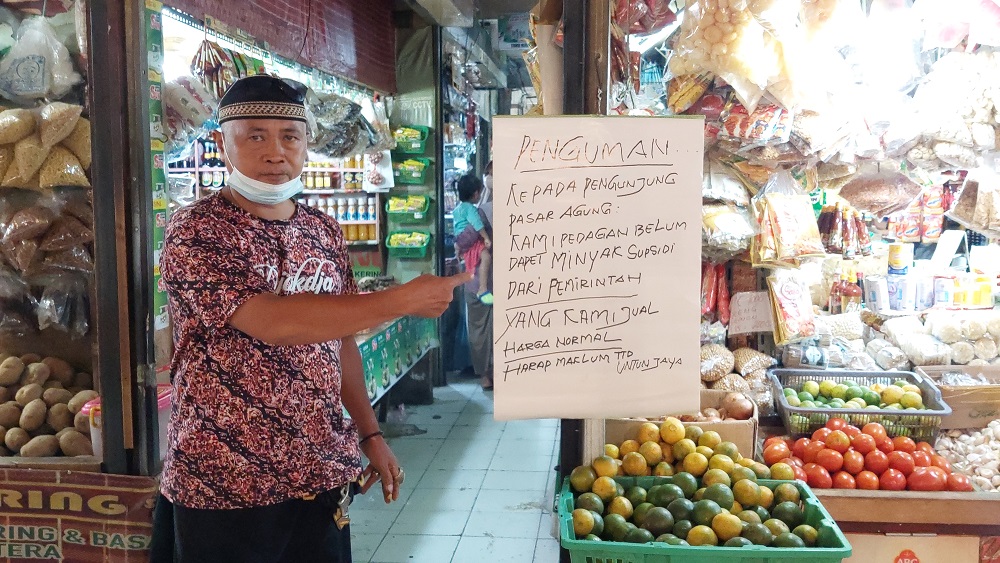 PENGUMAN....
KEPADA PENGUNJUNG
PASAR AGUNG:
KAMI PEDAGAN BELUM
DAPET MINYAK SUPSIDI
DARI PEMIRINTAH
YANG KAMI JUAL
HARGA NORMAL
HARAP MAKLUM TTD
UNTUN JAYA
KERING
RING
ERING & BASA
TERA
ABC